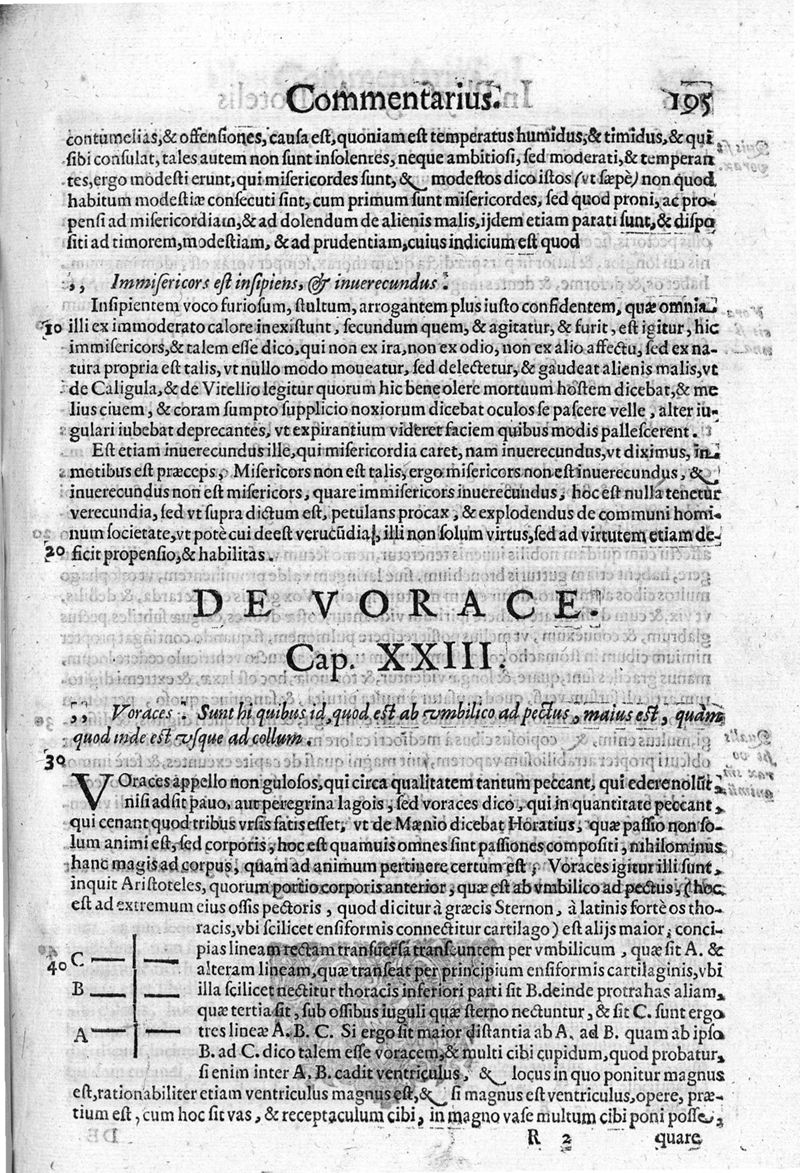 Commentarius. 195
contumelias,& offensiones, causa est, quoniam est temperatus humidus,& timidus,& qui
sibi consulat, tales autem non sunt insolentes, neque ambitiosi, sed moderati,& temperan
tes, ergo modesti erunt, qui misericordes sunt, & modestos dico istos (vt sæpè) non quod
habitum modestiæ consecuti sint, cum primum sunt misericordes, sed quod proni, ac pro
pensi ad misericordiam,& ad dolendum de alienis malis, ijdem etiam parati sunt,& dispo
siti ad timorem, modestiam, & ad prudentiam, cuius indicium est quod
,, Immisericors est insipiens, & inuerecundus.
Insipientem voco furiosum, stultum, arrogantem plus iusto confidentem, quæ omnia
10 illi ex immoderato calore inexistunt, secundum quem, & agitatur, & furit, est igitur, hic
immisericors,& talem esse dico, qui non ex ira, non ex odio, non ex alio affectu, sed ex na-
tura propria est talis, vt nullo modo moueatur, sed delectetur,& gaudeat alienis malis, vt
de Caligula,& de Vitellio legitur quorum hic bene olere mortuum hostem dicebat,& me
lius ciuem, & coram sumpto supplicio noxiorum dicebat oculos se pascere velle, alter iu-
gulari iubebat deprecantes, vt expirantium videret faciem quibus modis pallescerent.
Est etiam inuerecundus ille, qui misericordia caret, nam inuerecundus, vt diximus, in
motibus est præceps, Misericors non est talis, ergo misericors non est inuerecundus, &
inuerecundus non est misericors, quare immisericors inuerecundus, hoc est nulla tenetur
verecundia, sed vt supra dictum est, petulans procax, & explodendus de communi homi-
num societate, vt potè cui deest verucũdia, illi non solum virtus, sed ad virtutem etiam de-
20 ficit propensio,& habilitas.
DE VORACE.
Cap. XXIII.
,, Voraces : Sunt hi quibus id, quod est ab vmbilico ad pectus, maius est, quàm
quod inde est vsque ad collum.
30
VOraces appello non gulosos, qui circa qualitatem tantum peccant, qui edere nolũt
nisi adsit pauo, aut peregrina lagois, sed voraces dico, qui in quantitate peccant,
qui cenant quod tribus vrsis satis esset, vt de Mænio dicebat Horatius, quæ passio non so-
lum animi est, sed corporis, hoc est quamuis omnes sint passiones compositi, nihilominus
hanc magis ad corpus, quam ad animum pertinere certum est, Voraces igitur illi sunt,
inquit Aristoteles, quorum portio corporis anterior, quæ est ab vmbilico ad pectus, (hoc
est ad extremum eius ossis pectoris, quod dicitur à græcis Sternon, à latinis fortè os tho-
racis, vbi scilicet ensiformis connectitur cartilago) est alijs maior, conci-
pias lineam rectam transuersã transeuntem per vmbilicum, quæ sit A. &
40 alteram lineam, quæ transeat per principium ensiformis cartilaginis, vbi
illa scilicet nectitur thoracis inferiori parti sit B. deinde protrahas aliam,
quæ tertia sit, sub ossibus iuguli quæ sterno nectuntur, & sit C. sunt ergo
tres lineæ A. B. C. Si ergo sit maior distantia ab A. ad B. quam ab ipso
B. ad C. dico talem esse voracem,& multi cibi cupidum, quod probatur,
si enim inter A. B. cadit ventriculus, & locus in quo ponitur magnus
est, rationabiliter etiam ventriculus magnus est,& si magnus est ventriculus, opere, præ-
tium est, cum hoc sit vas, & receptaculum cibi, in magno vase multum cibi poni posse,
C
B
A
R 2 quare